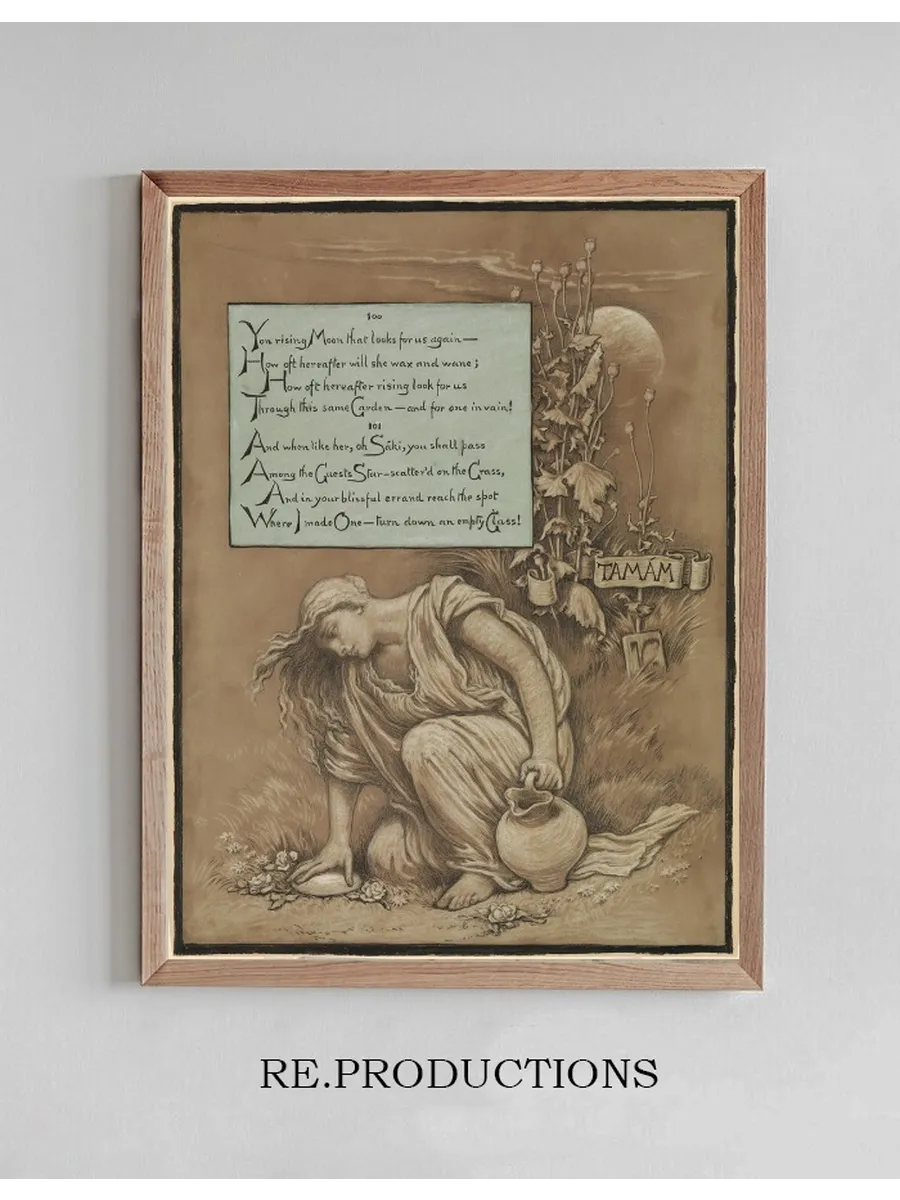 100
Yon rising Moon that looks for us again—
How oft hereafter will she wax and wane;
How oft hereafter rising look for us
Through this same Garden—and for one in vain!
101
And when like her, oh Sákí, you shall pass
Among the Guests Star-scatter'd on the Grass,
And in your blissful errand reach the spot
Where I made One—turn down an empty Glass!
TAMÁM
RE.PRODUCTIONS